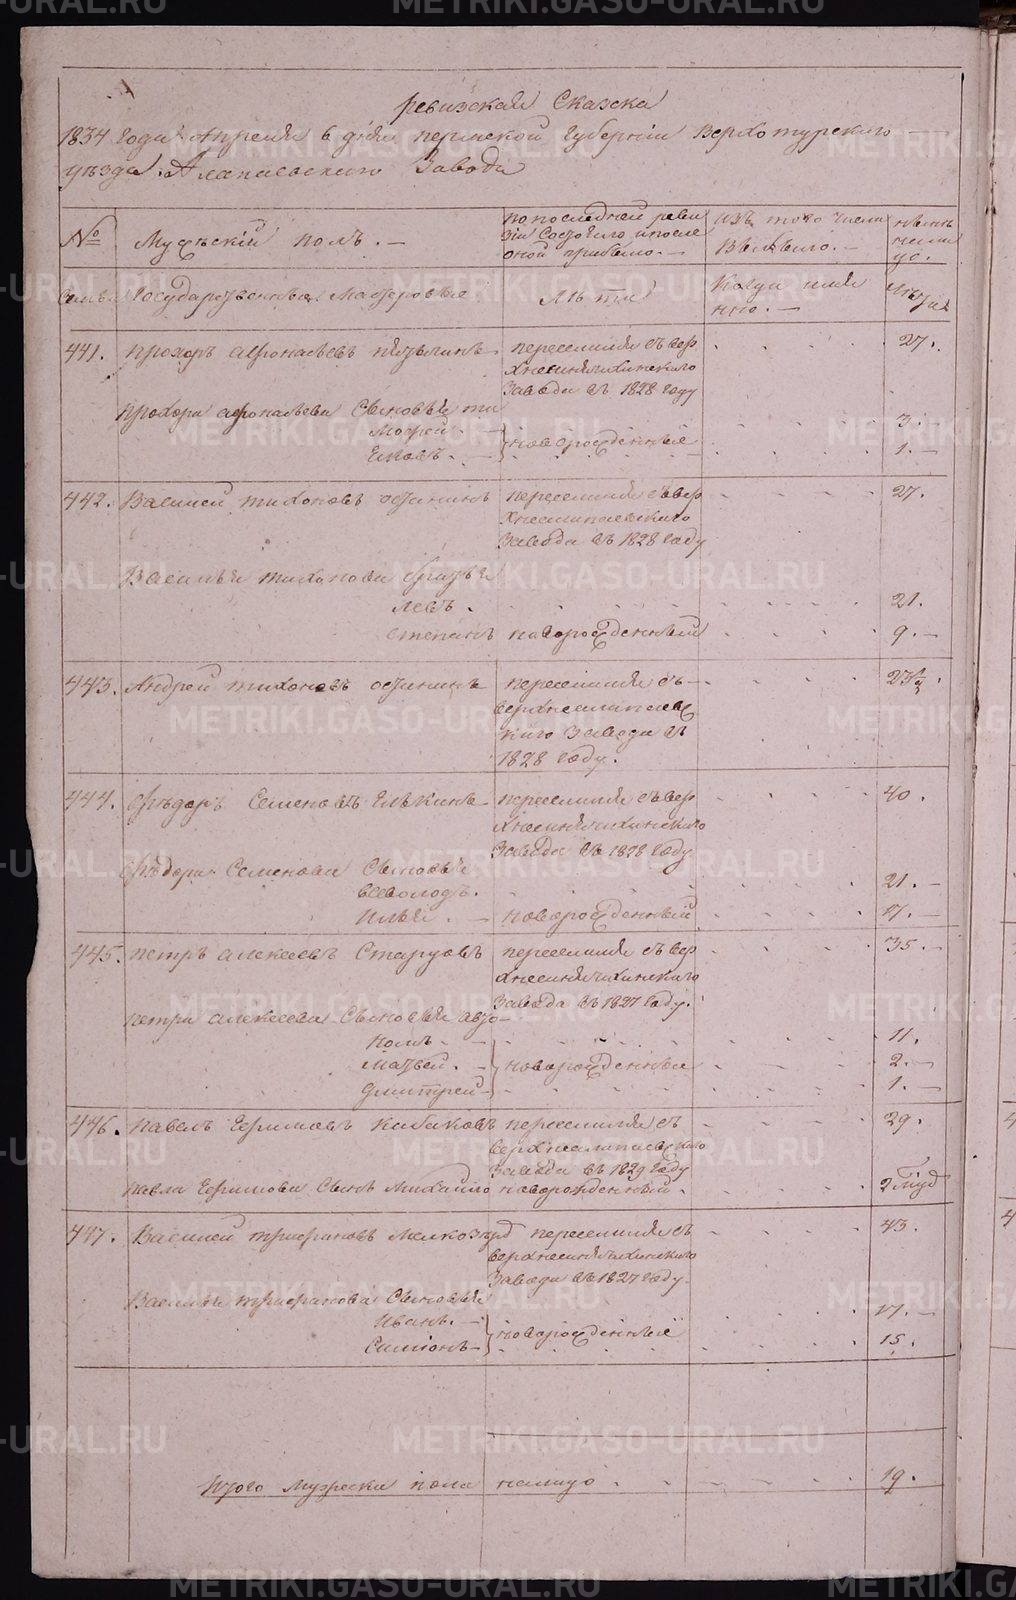 Ревизская Сказка
1834 года Апреля 6 дня пермской губернии Верхотурскаго
уезда. Алапаевского Завода
№ Мужеский полъ. — по последней реви зии состояло и после оной прибыло. — Изъ того числа Выбыло. — ныне на лицо.
Семьи Государственные Мастеровые Лета Когда имян но. — Лета
441. прохоръ афонасьевъ переселился съ вер 27.
хнесинячихинского
Завода въ 1828 году
прохора афонасьева Сыновья ти 3. —
мофей. — новорожденные
Яковъ. — 1. —
442. Василей тихоновъ останинъ переселился съ вер 27.
хнеалапаевского
Завода въ 1828 году
Василья тихонова братья
Левъ. 21.
степанъ новорожденный 9. —
443. Андрей тихоновъ останинъ переселился съ 23½.
верхнеалапаевс
кого Завода въ
1828 году.
444. Федоръ Семеновъ переселился съ вер 40.
хнесинячихинского
Завода въ 1828 году
Федора Семенова Сыновья 21. —
всеволодъ.
Илья. — новорожденный 17. —
445. петръ алексеевъ Старцовъ переселился съ вер 35. —
хнесинячихинского
Завода въ 1827 году.
петра алексеева Сыновья арто
номъ — 11.
Матвей. — новорожденные 2. —
Дмитрей — 1. —
446. павелъ Ермиловъ Кабаковъ переселился съ 29.
верхнеалапаевского
Завода въ 1829 году
павла Ермилова Сынъ Михайло новорожденный. 2
447. Василей трифановъ Мелкозёр переселился съ 43.
верхнесинячихинского
Завода въ 1827 году.
Василья трифанова Сыновья
Иванъ. — новорожденные 17. —
Симионъ — 15.
Итого Мужеска пола налицо 19.
METRIKI.GASO-URAL.RU